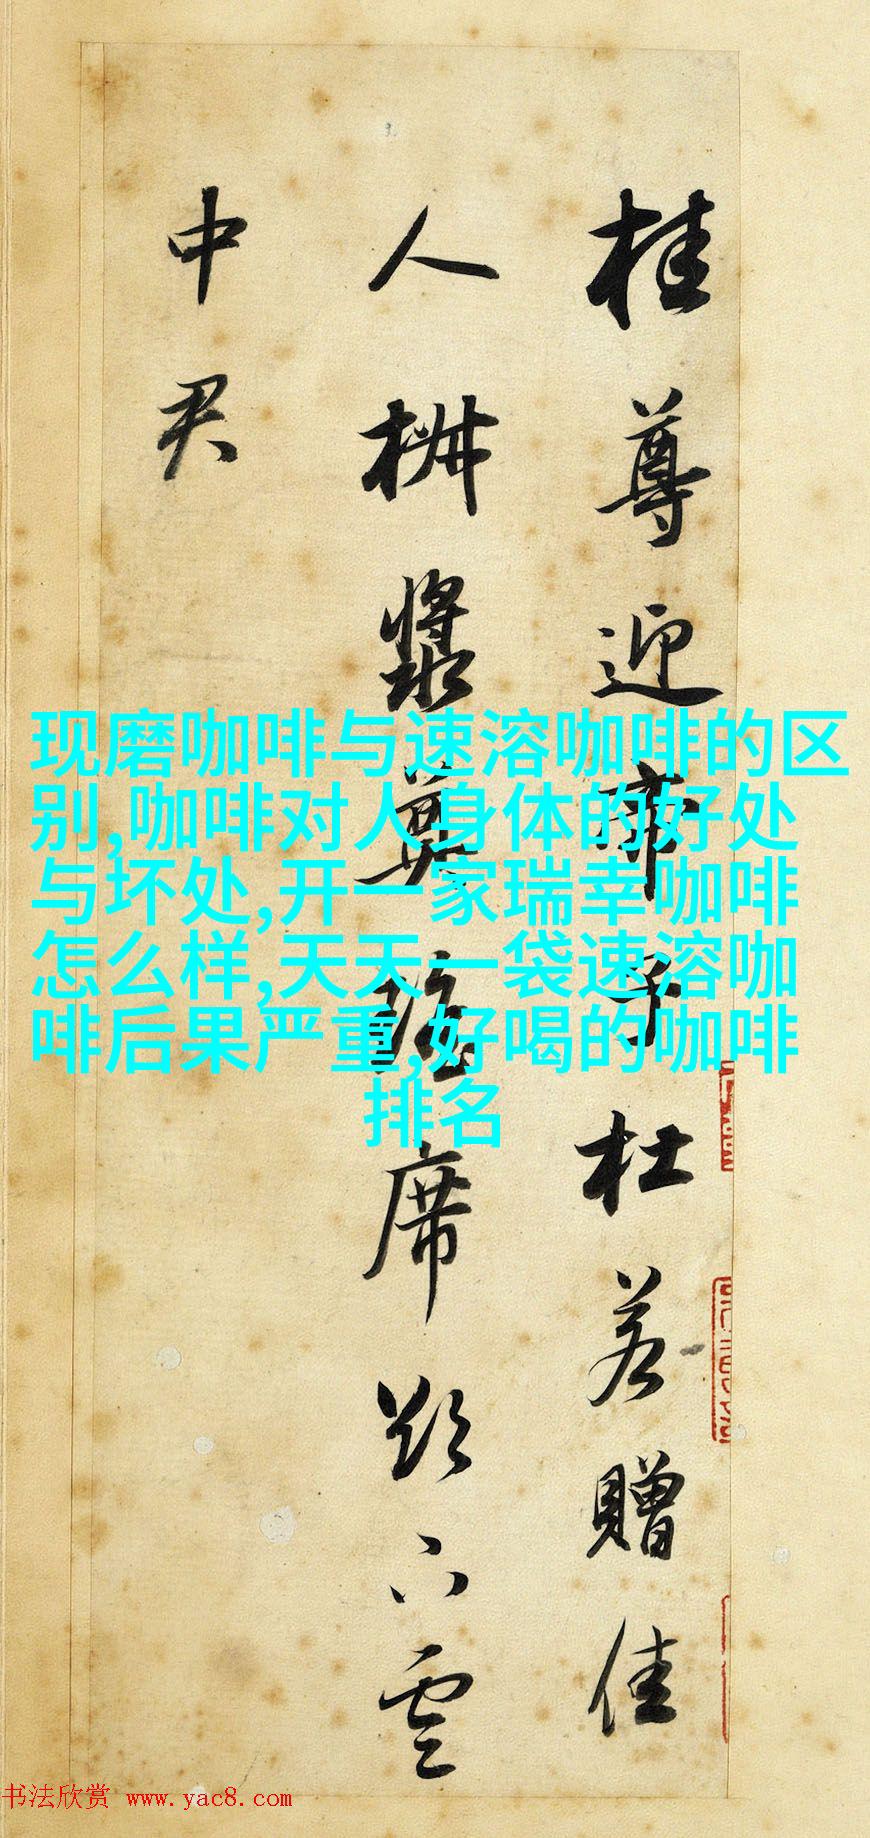 桂尊迎帝子杜若贈佳
人椒漿奠瑤席欲下雲
中君
现磨咖啡与速溶咖啡的区
别,咖啡对人身体的好处
与坏处,开一家瑞幸咖啡
怎么样,天天一袋速溶咖
啡后果严重,好喝的咖啡
排名
书法欣赏 www.yac8.com